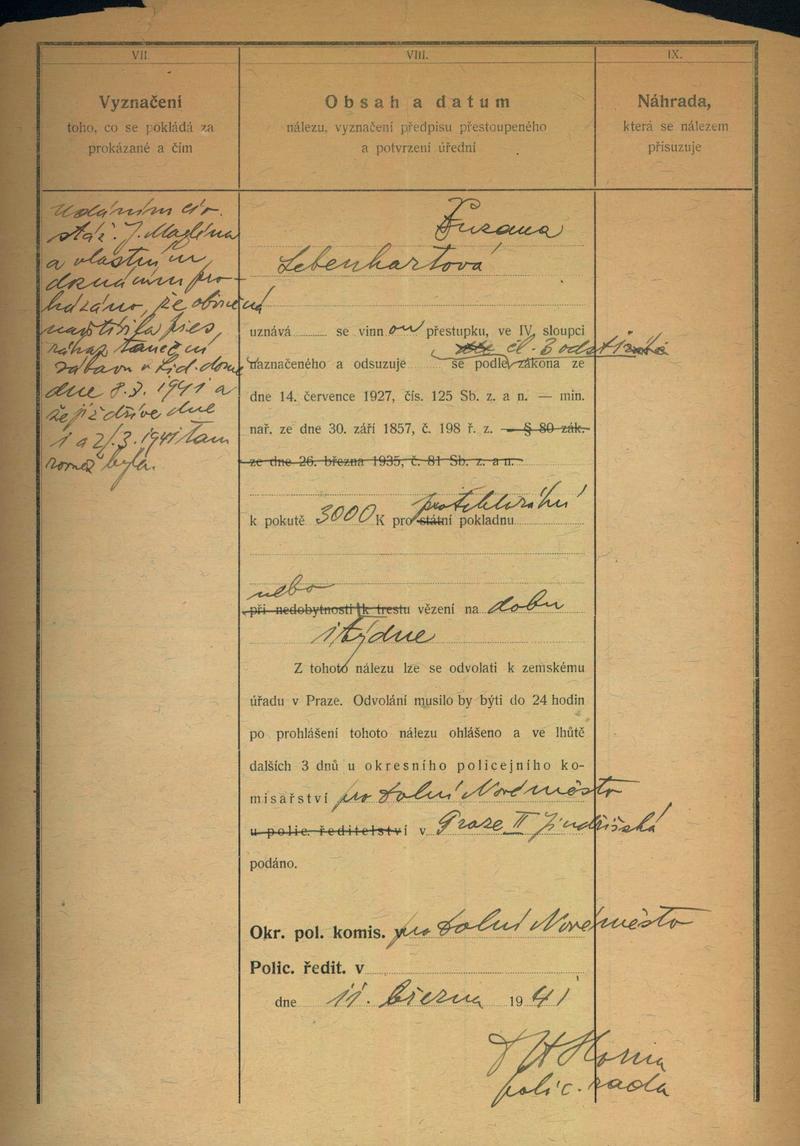 VII.
Vyznačení
toho, co se pokládá za
prokázané a čím
Udáním civ.
stáž. J. Maglena
a vlastním
doznáním pro-
kázáno, že obviněná
navštívila přes
zákaz taneční
zábavu v Lid. domě
dne 8.3. 1941 a
že již dříve dne
1 a 2/.3. 1941 tam
rovněž byla.
VIII.
Obsah a datum
nálezu, vyznačení předpisu přestoupeného
a potvrzení úřední
Zuzana
Lebenhartová
uznává se vinnou přestupku, ve IV. sloupci
čl. 3 odst. 1
naznačeného a odsuzuje se podle zákona ze
dne 14. července 1927, čís. 125 Sb. z. a n. — min.
nař. ze dne 30. září 1857, č. 198 ř. z. — § 80 zák.
ze dne 26. března 1935, č. 81 Sb. z. a n.
protektorátní
k pokutě 3000 K pro státní pokladnu
nebo
při nedobytnosti k trestu vězení na dobu
1 týdne
Z tohoto nálezu lze se odvolati k zemskému
úřadu v Praze. Odvolání musilo by býti do 24 hodin
po prohlášení tohoto nálezu ohlášeno a ve lhůtě
dalších 3 dnů u okresního policejního ko-
misařství pro Dolní Nové město
u polic. ředitelství v Praze II Jindřišská
podáno.
Okr. pol. komis. v pro Dolní Nové město
Polic. ředit. v
dne 11. března 1941
polic. rada
IX.
Náhrada,
která se nálezem
přisuzuje